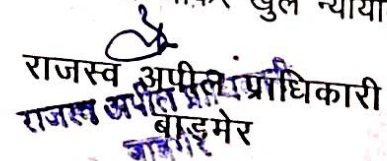 खुले न्याया
राजस्व अपील प्राधिकारी
राजस्व अपील
बाड़मेर